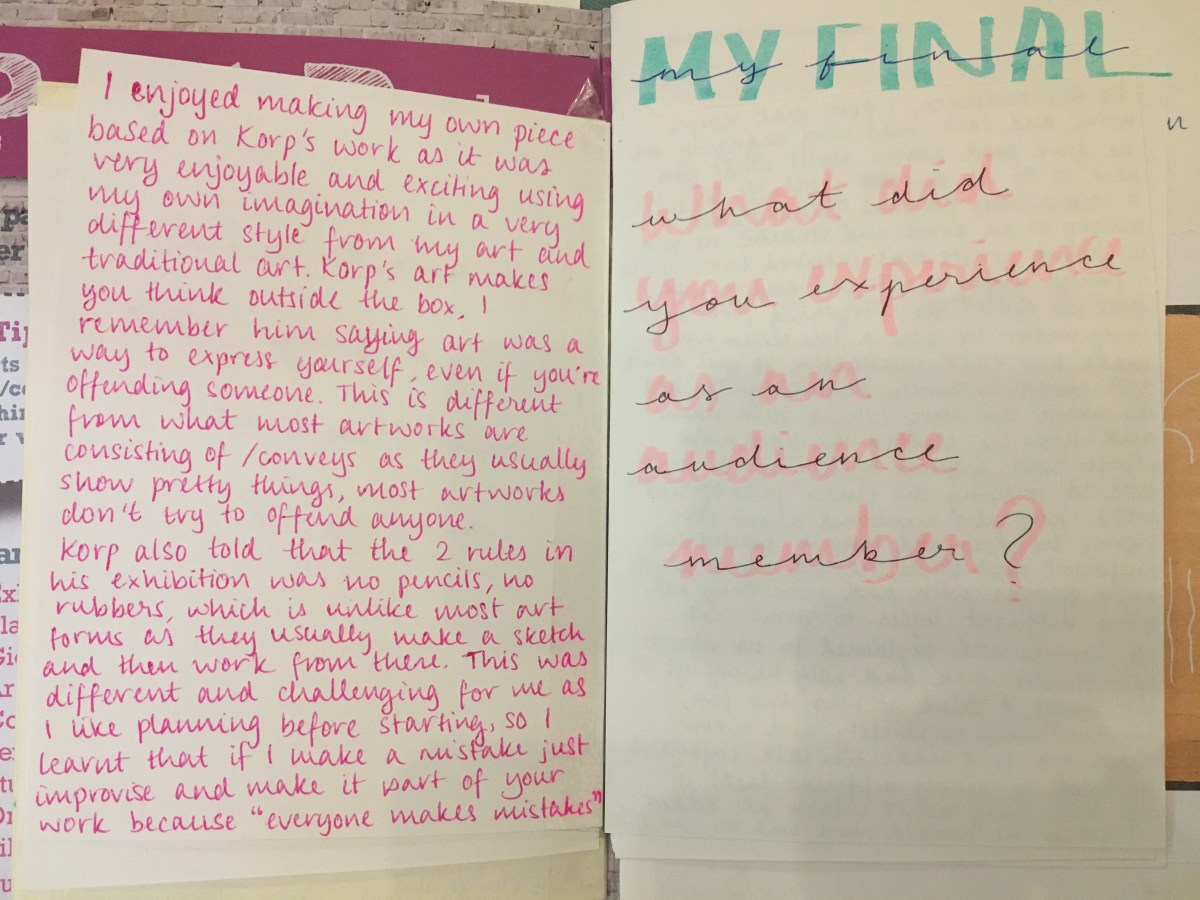 I enjoyed making my own piece
based on Korp's work as it was
very enjoyable and exciting using
my own imagination in a very
different style from my art and
traditional art. Korp's art makes
you think outside the box, I
remember him saying art was a
way to express yourself, even if you're
offending someone. This is different
from what most artworks are
consisting of /conveys as they usually
show pretty things, most artworks
don't try to offend anyone.
Korp also told that the 2 rules in
his exhibition was no pencils, no
rubbers, which is unlike most art
forms as they usually make a sketch
and then work from there. This was
different and challenging for me as
I like planning before starting, so I
learnt that if I make a mistake just
improvise and make it part of your
work because "everyone makes mistakes"
MY FINAL
my final
what did
you experience
as an
audience
member?